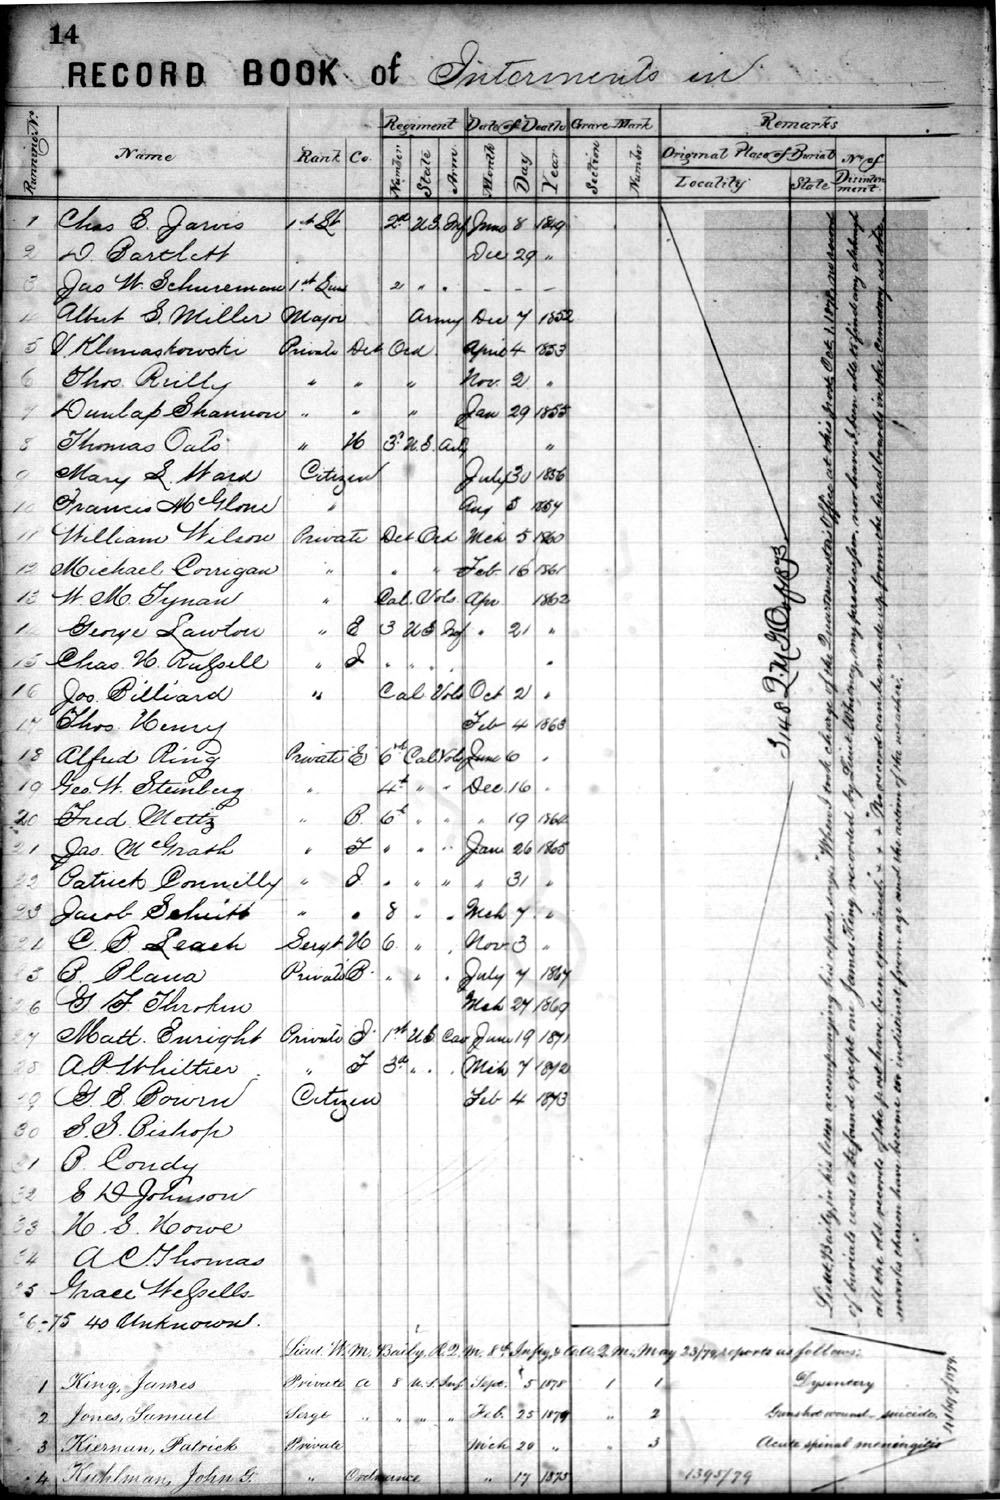 14
RECORD BOOK of Interments in
Running No. Name Rank Co. Regiment Date of Death Grave Mark Remarks
Number State Arm Month Day Year Section Number Original Place of Burial No. of Disinterment.
Locality State
1 Chas E. Jarvis 1st Lt 2nd U.S. Inf June 8 1849
2 D Bartlett Dec 29 "
3 Jas W. Schureman 1st Lieu 2 " " - - -
4 Albert S. Miller Major Army Dec 7 1852
5 V. Klumaskowski Private Det Ord. April 4 1853
6 Thos. Reilly " " " Nov. 2 "
7 Dunlap Shannon " " " Jan 29 1855
8 Thomas Oats " H 3d U.S. Arty "
9 Mary L. Ward Citizen July 30 1856
10 Francis McGlone " Aug 5 1857
11 William Wilson Private Det Ord Mch 5 1860
12 Michael Corrigan " " " Feb. 16 1861
13 W. M. Tynan " Cal. Vols. Apr 1862
14 George Lawton " E 3 U S Inf " 21 "
15 Chas. H. Russell " I " " " "
16 Jos. Billiard " Cal Vols Oct 2 "
17 Thos. Henry Feb 4 1863
18 Alfred Ring Private E 6th Cal Vols June 6 "
19 Geo. W. Steinberg " 4th " " Dec. 16 "
20 Fred Mottz " B 6th " " " 19 1864
21 Jas. McGrath " F " " " Jan 26 1865
22 Patrick Connilly " I " " " " 31 "
23 Jacob Schutt " " 8 " " Mch 7 "
24 C. B. Leach Sergt H 6 " " Nov 3 "
25 B. Plana Private B. " " " July 7 1867
26 G. F. Throkm Mch 27 1869
27 Matt. Enright Private I 1st U S Cav June 19 1871
28 A. P. Whittier " F 3rd " " Mch 7 1872
29 G. E. Bowrn Citizen Feb 4 1873
30 S. S. Bishop
31 P. Condy
32 E D Johnson
33 H. S. Howe
34 A C Thomas
35 Grace Wessells
36-75 40 Unknown.
3148 Q.M.G.O. 1873.
Lieut. Baily, in his letter accompanying his report, says: "When I took charge of the Quartermaster Office at this post, Oct. 1, 1878, no record
of burials was to be found except one James King, recorded by Lieut. Whitney, my predecessor, nor have I been able to find any although
all the old records of the post have been examined; + + + "No record can be made up from the headboards in the cemetery as the
marks thereon have become indistinct from age and the action of the weather".
Lieut. W. M. Baily, R.Q.M. 8th Infty, & A.A.Q.M., May 23/79, reports as follows:
1 King, James Private A 8 U.S. Inf. Sept. 5 1878 1 1 Dysentery
2 Jones, Samuel Sergt " " " " Feb. 25 1879 " 2 Gunshot wound - suicide.
3 Kiernan, Patrick Private Mch 20 " " 3 Acute spinal meningitis
4 Kuhlman, John G. " Ordnance " 17 1875 1395/79